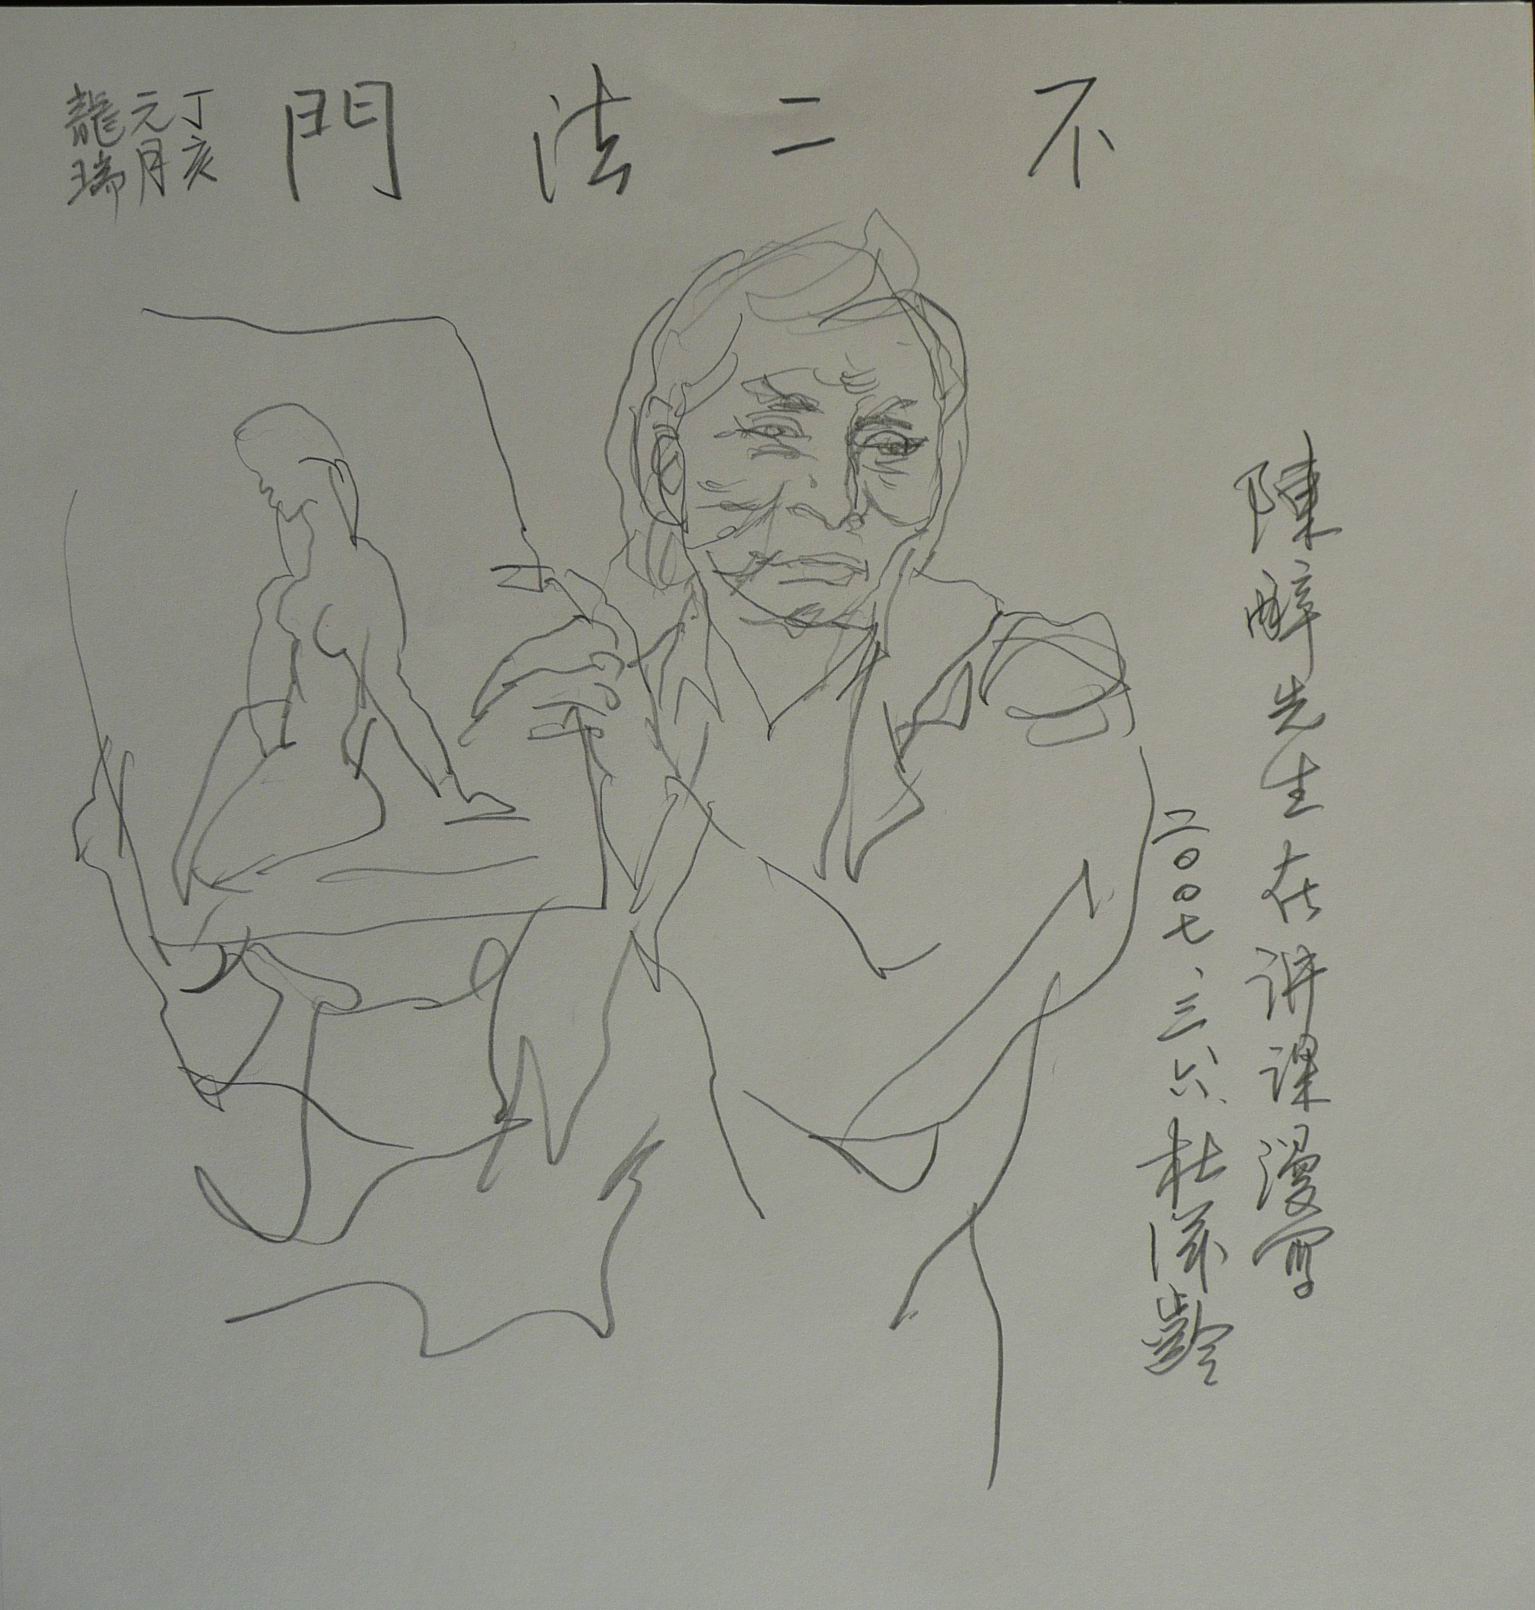 不二法門
丁亥
元月
龍瑞
陳醉先生在讲课漫写
二〇〇七、三、六、杜滋齡